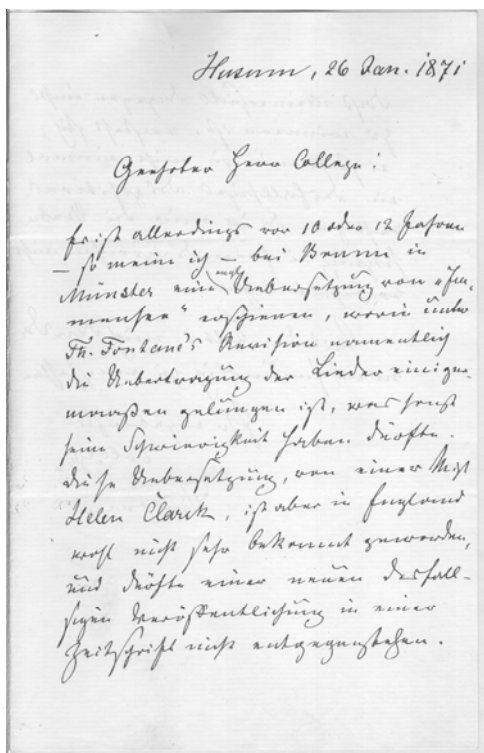 Husum, 26 Jan. 1871
Geehrter Herr College!
Es ist allerdings vor 10 oder 12 Jahren
– so mein ich – bei Brunn in
Münster eine engl. Uebersetzung von „Im-
mensee“ erschienen, worin unter
Th. Fontane's Revision namentlich
die Uebertragung der Lieder einiger-
maaßen gelungen ist, was sonst
seine Schwierigkeit haben dürfte.
Diese Uebersetzung, von einer Miß
Helen Clark, ist aber in England
wohl nicht sehr bekannt geworden,
und dürfte einer neuen desfall-
sigen Veröffentlichung in einer
Zeitschrift nicht entgegenstehen.